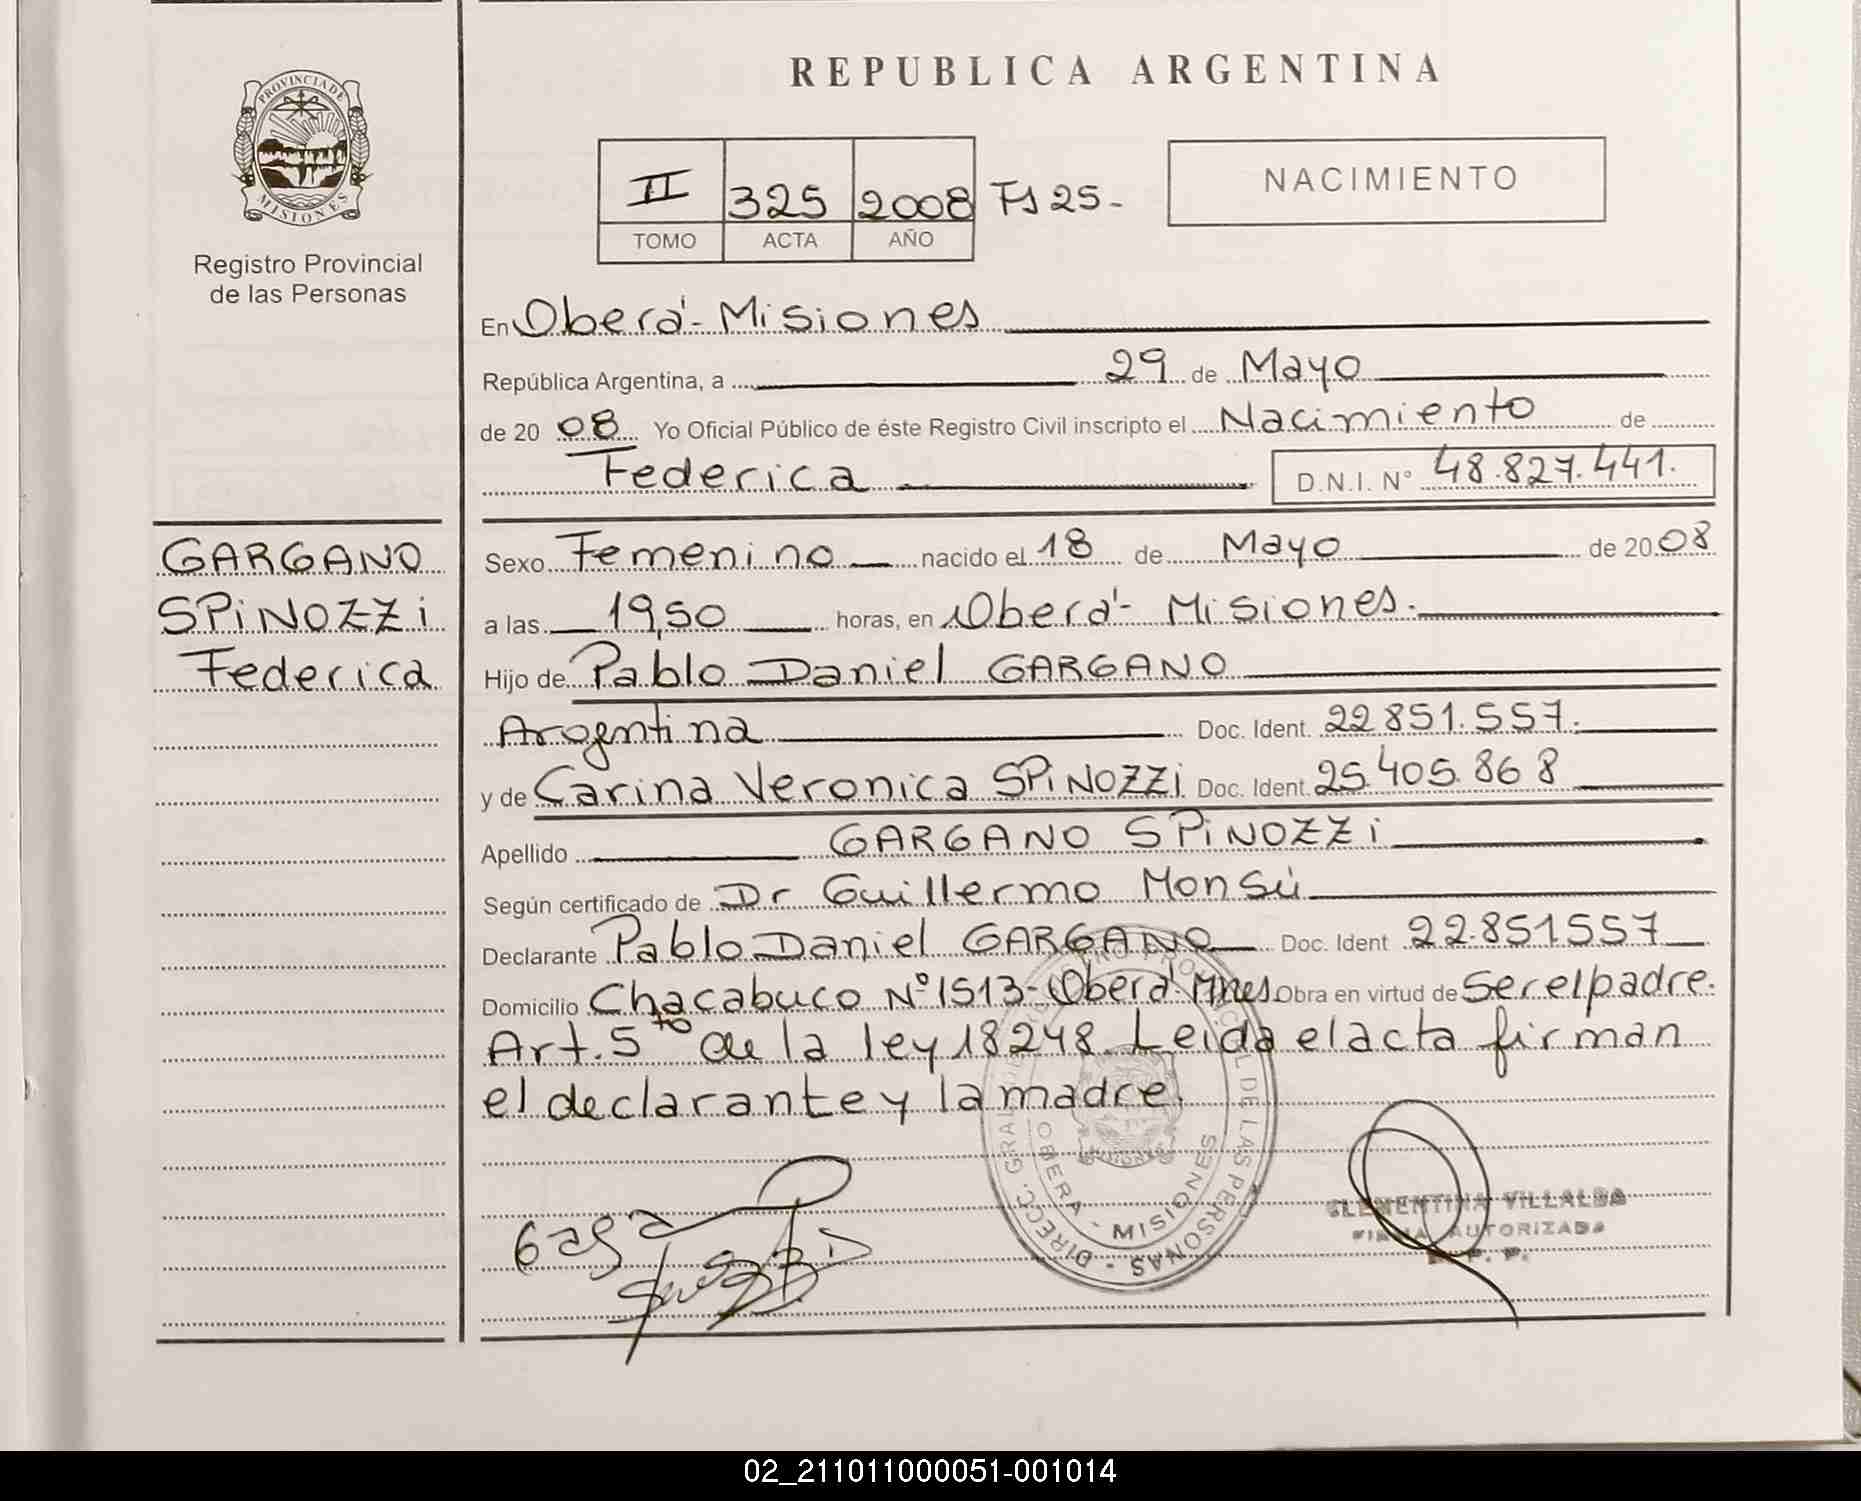 PROVINCIA DE
MISIONES
Registro Provincial
de las Personas
REPUBLICA ARGENTINA
II 325 2008 Fs 25-
TOMO ACTA AÑO
NACIMIENTO
En Oberá- Misiones
República Argentina, a 29 de Mayo
de 20 08 Yo Oficial Público de éste Registro Civil inscripto el Nacimiento de
Federica D.N.I. N° 48.827.441.
GARGANO
SPiNOZZi
Federica
Sexo Femenino nacido el 18 de Mayo de 20 08
a las 19,50 horas, en Oberá- Misiones.
Hijo de Pablo Daniel GARGANO
Argentina Doc. Ident. 22 851.557.
y de Carina Veronica SPiNOZZi Doc. Ident. 25.405.868
Apellido GARGANO SPiNOZZi
Según certificado de Dr Guillermo Monsú
Declarante Pablo Daniel GARGANO Doc. Ident 22.851557
Domicilio Chacabuco N° 1513- Oberá Mnes. Obra en virtud de Ser el padre.
Art. 5to de la ley 18248. Leida el acta firman
el declarante y la madre.
OBERA - MISIONES
CLEMENTINA VILLALBA
FIRMA AUTORIZADA
02_211011000051-001014